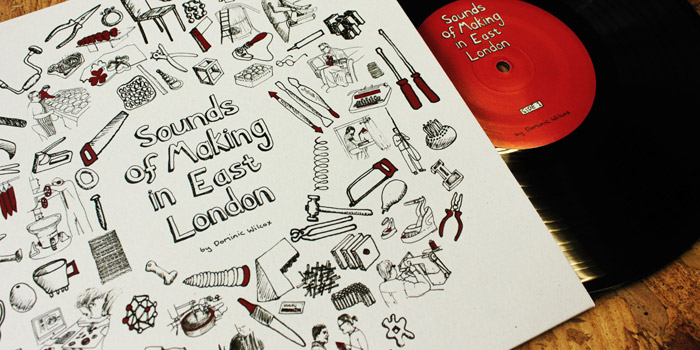 Sounds
of Making
in East
London
by Dominic Wilcox
Sounds
of Making
in East
London
SIDE 1
by Dominic Wilcox